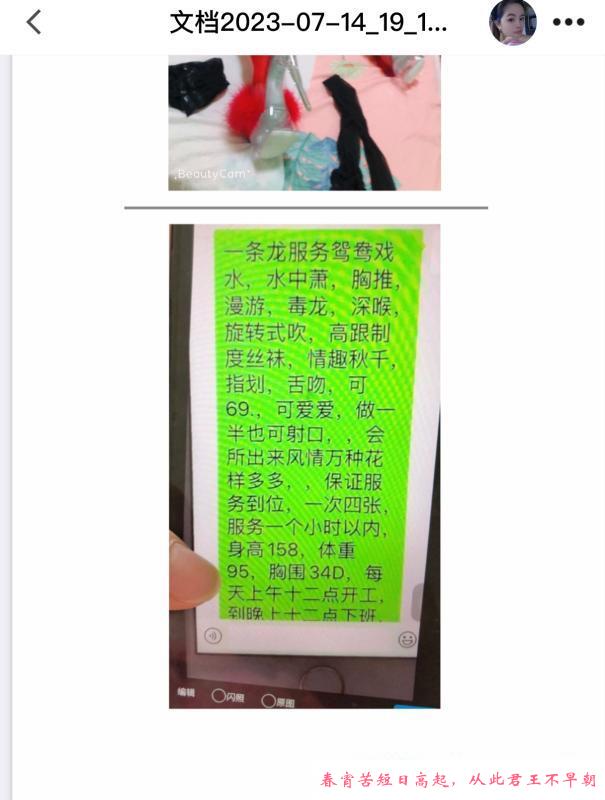 文档2023-07-14_19_1...
BeautyCam
一条龙服务鸳鸯戏
水，水中萧，胸推，
漫游，毒龙，深喉，
旋转式吹，高跟制
度丝袜，情趣秋千，
指划，舌吻，可
69.，可爱爱，做一
半也可射口，，会
所出来风情万种花
样多多，，保证服
务到位，一次四张，
服务一个小时以内，
身高158，体重
95，胸围34D，每
天上午十二点开工，
到晚上十二点下班，
编辑 闪照 原图
春宵苦短日高起，从此君王不早朝